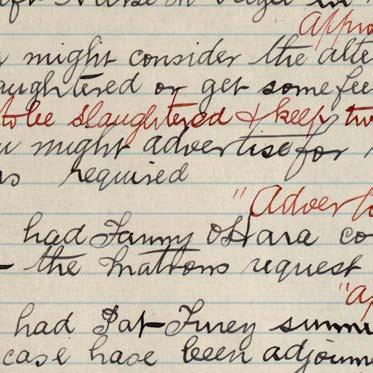 appro
might consider the alte
aughtered or get some fee
to be slaughtered & keep tw
u might advertise for
required
"Advert
had Fanny O'Hara co
the Matrons request
"ap
had Pat Furey summ
case have been adjourn